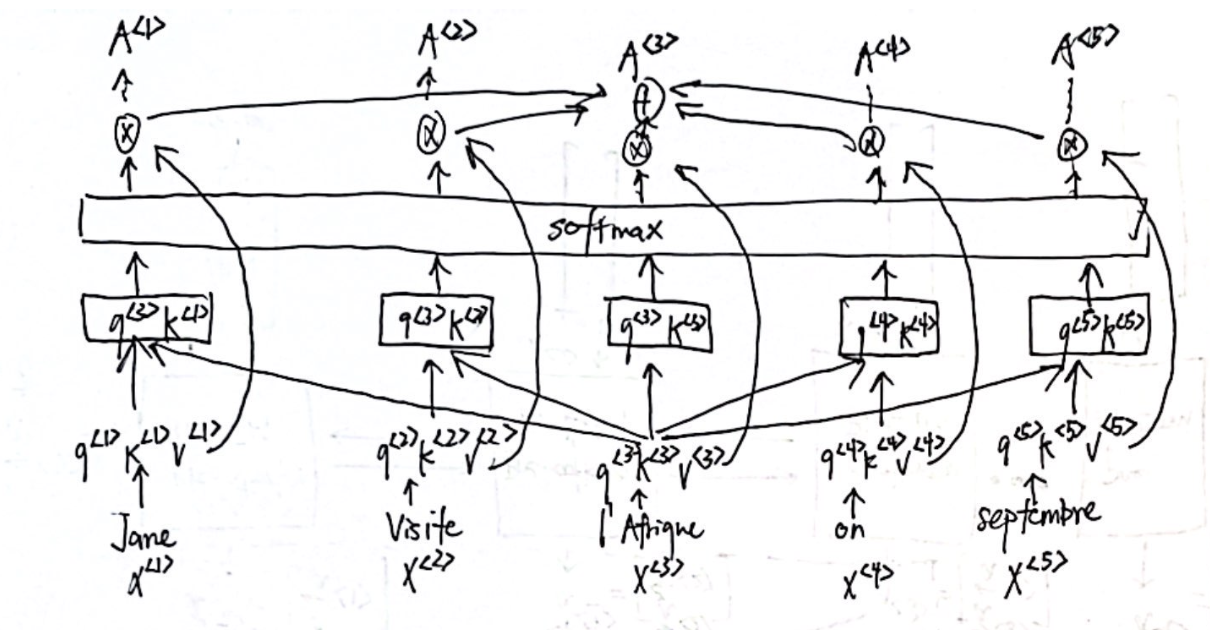 A<1> A<2> A<3> A<4> A<5>
softmax
q<3>k<1> q<3>k<2> q<3>k<3> q<4>k<4> q<5>k<5>
q<1>k<1>v<1> q<2>k<2>v<2> q<3>k<3>v<3> q<4>k<4>v<4> q<5>k<5>v<5>
Jane Visite l'Afrique on septembre
x<1> x<2> x<3> x<4> x<5>